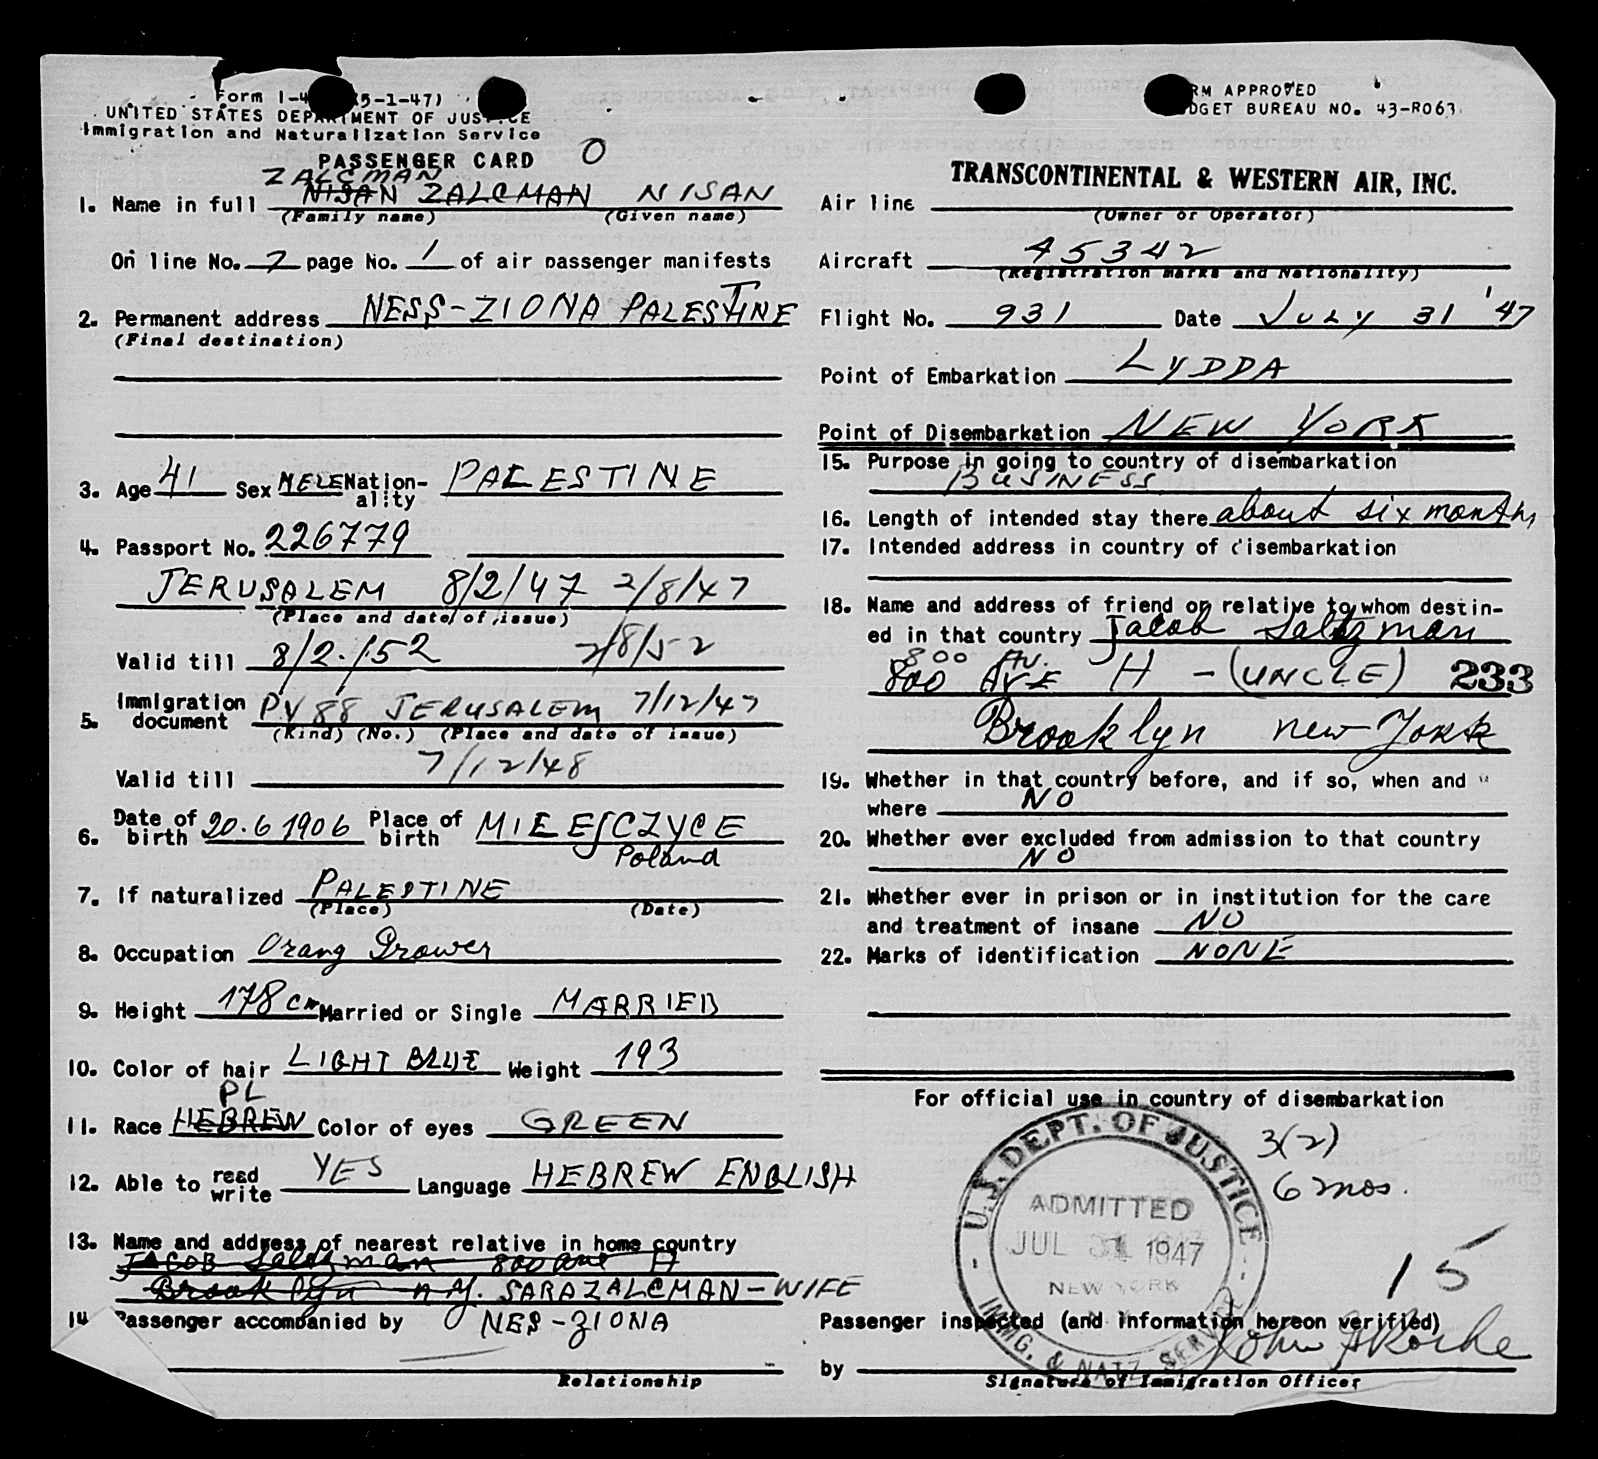 Form I-4 (5-1-47)
UNITED STATES DEPARTMENT OF JUSTICE
Immigration and Naturalization Service
PASSENGER CARD O
ZALCMAN
1. Name in full NISAN ZALCMAN NISAN
(Family name) (Given name)
On line No. 7 page No. 1 of air passenger manifests
2. Permanent address NESS-ZIONA PALESTINE
(Final destination)
3. Age 41 Sex MELE Nation-ality PALESTINE
4. Passport No. 226779
JERUSALEM 8/2/47 2/8/47
(Place and date of issue)
Valid till 8/2/52 2/8/52
5. Immigration document PV 88 JERUSALEM 7/12/47
(Kind) (No.) (Place and date of issue)
Valid till 7/12/48
6. Date of birth 20.6 1906 Place of birth MIEESCZYCE
Poland
7. If naturalized PALESTINE
(Place) (Date)
8. Occupation Orang Grower
9. Height 178 cm Married or Single MARRIED
10. Color of hair LIGHT BLUE Weight 193
PL
11. Race HEBREW Color of eyes GREEN
12. Able to read write YES Language HEBREW ENGLISH
13. Name and address of nearest relative in home country
JACOB Saltzman 800 ave H
Brooklyn n.y. SARA ZALCMAN - WIFE
14 Passenger accompanied by NES-ZIONA
Relationship
RM APPROVED
DGET BUREAU NO. 43-R063
TRANSCONTINENTAL & WESTERN AIR, INC.
Air line
(Owner or Operator)
Aircraft 45342
(Registration marks and Nationality)
Flight No. 931 Date JULY 31 '47
Point of Embarkation LYDDA
Point of Disembarkation NEW YORK
15. Purpose in going to country of disembarkation
BUSINESS
16. Length of intended stay there about six months
17. Intended address in country of disembarkation
18. Name and address of friend or relative to whom destin-
ed in that country Jacob Saltzman
800 Av.
800 AVE H - (UNCLE) 233
Brooklyn new-York
19. Whether in that country before, and if so, when and
where NO
20. Whether ever excluded from admission to that country
NO
21. Whether ever in prison or in institution for the care
and treatment of insane NO
22. Marks of identification NONE
For official use in country of disembarkation
3(2)
6 mos.
U.S. DEPT. OF JUSTICE
ADMITTED
JUL 31 1947
NEW YORK
N.Y.
IMMG. & NATZ. SERVICE
15
Passenger inspected (and information hereon verified)
by John
Signature of Immigration Officer